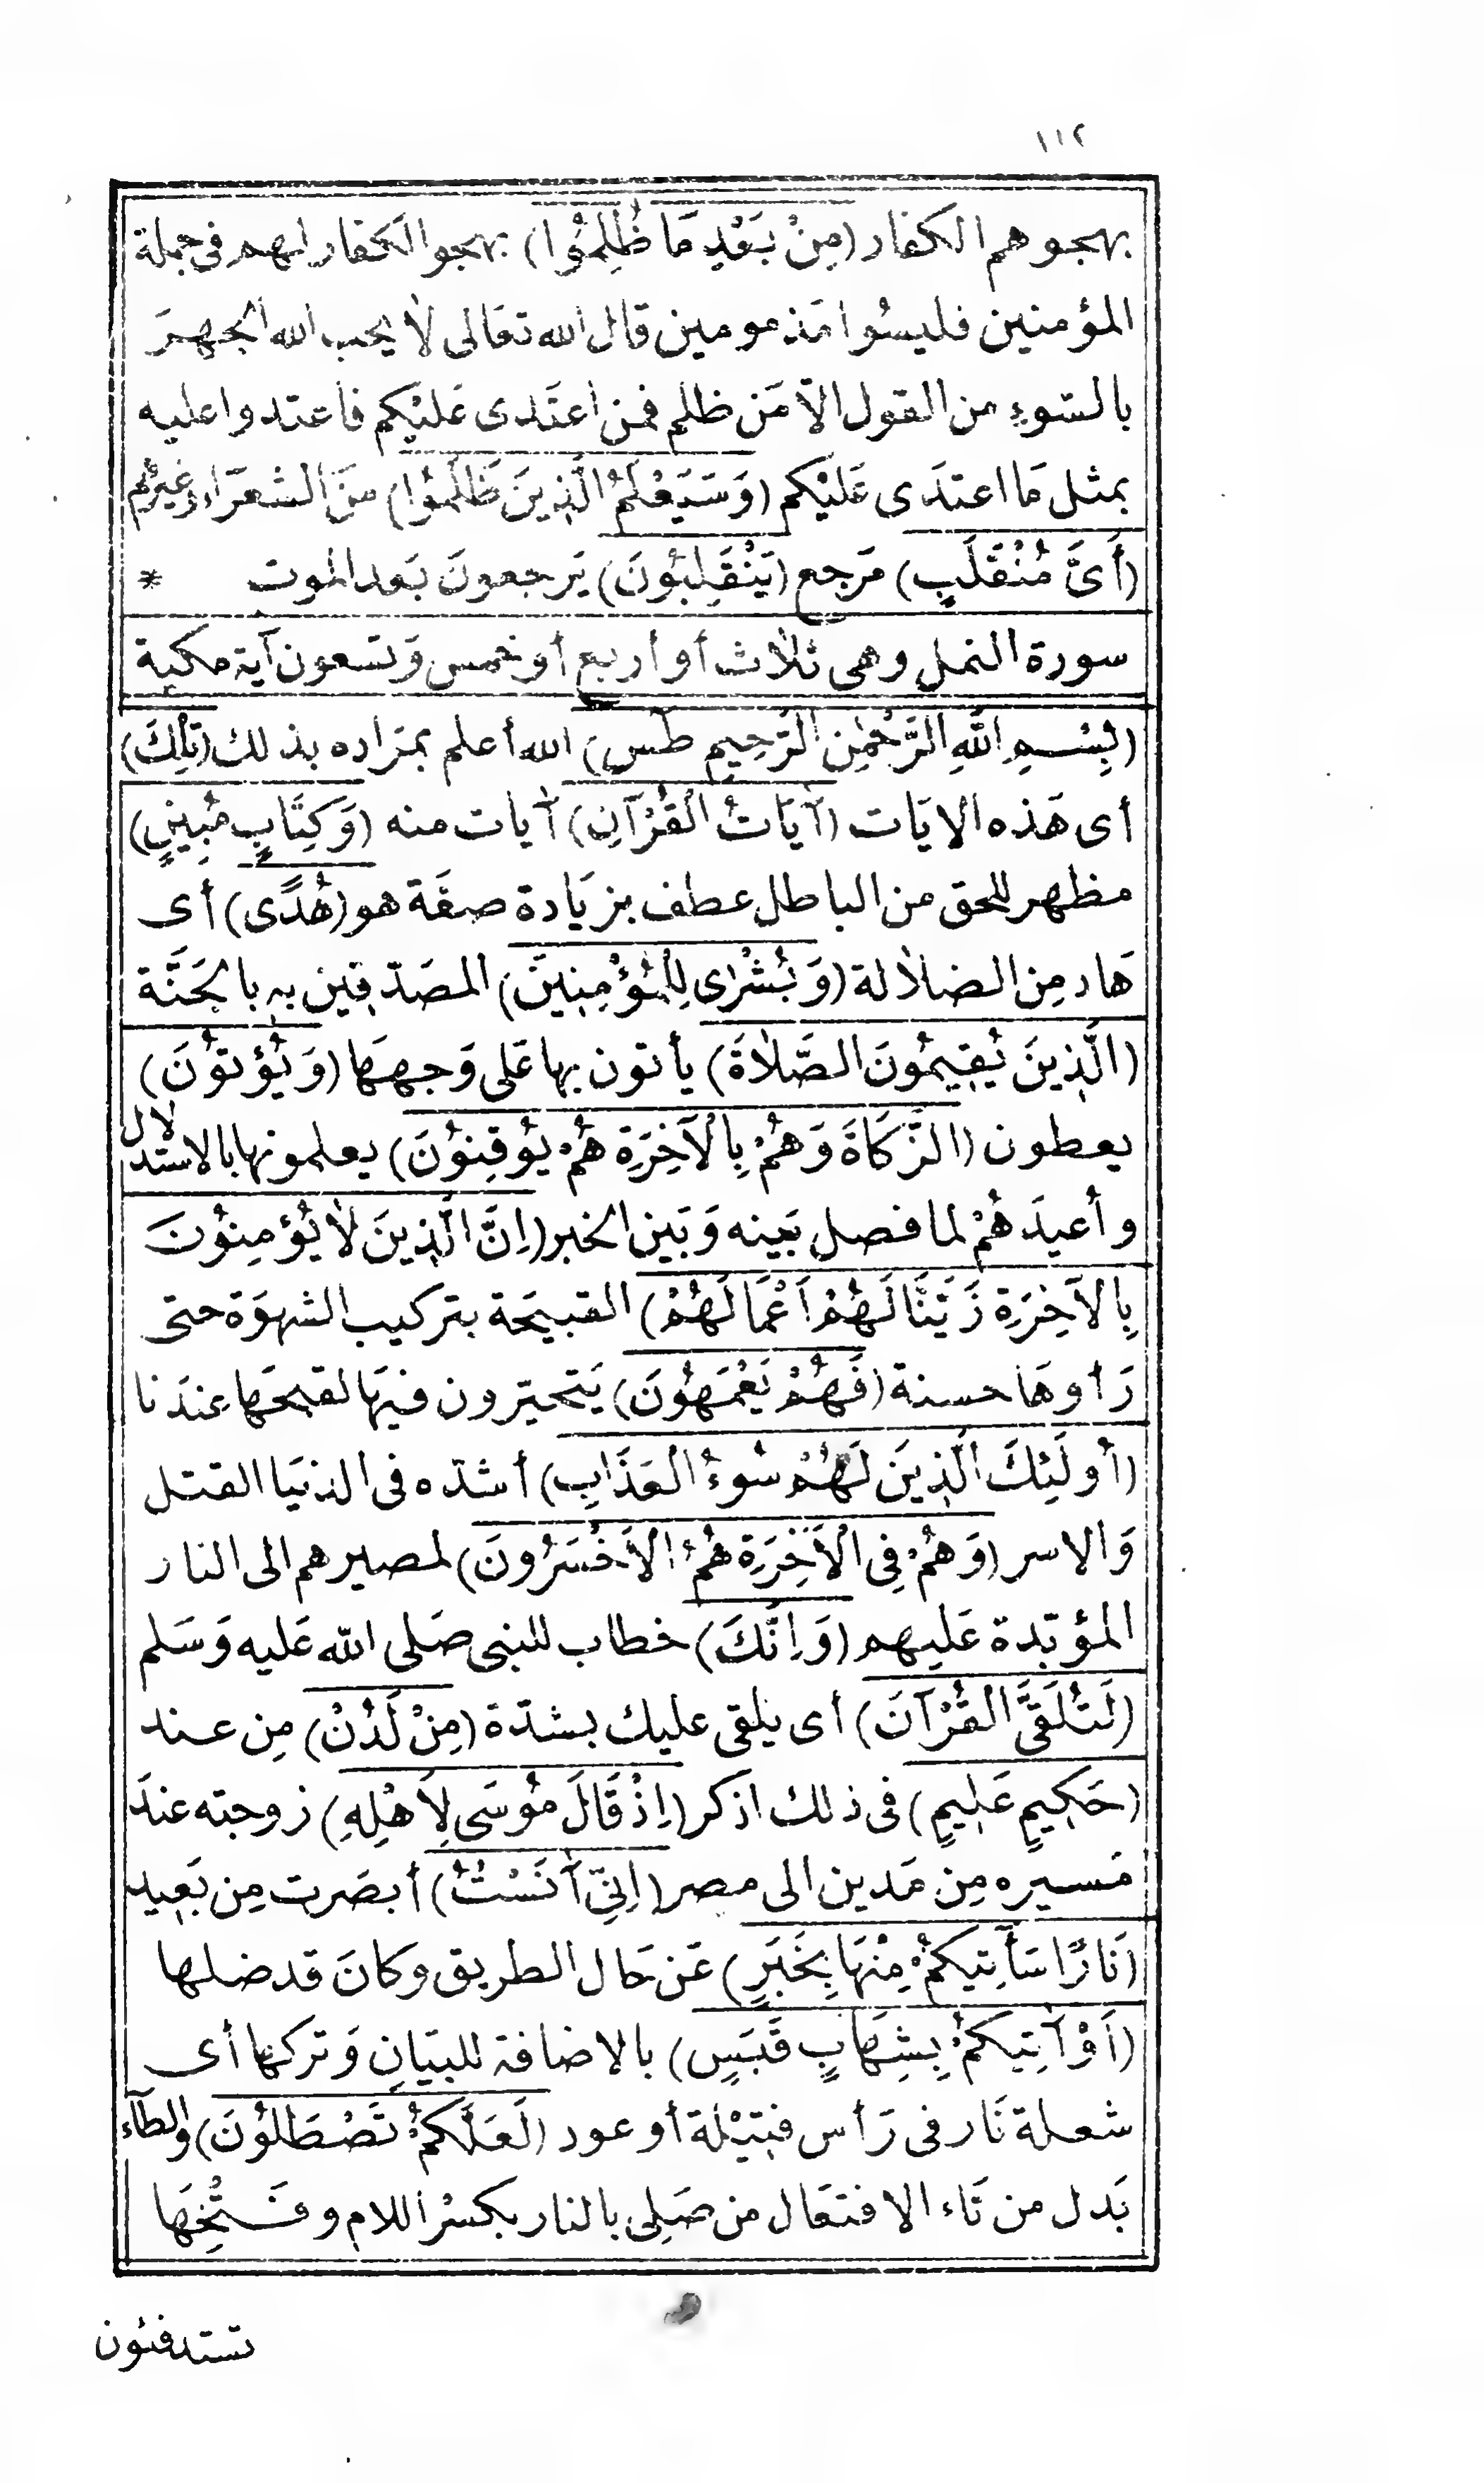 ١١٢
بهجوهم الكفار (مِنْ بَعْدِ مَا ظُلِمُوا) بهجو الكفار لهم فى جملة
المؤمنين فليسُوا مَذمومين قال الله تعَالى لاٰ يحب الله الجهرَ
بالسّوءِ من القول الاّ مَن ظلم فمن اعتَدى عَليْكم فاعتدوا عليه
بمثل مَا اعتدَى عَليْكم (وَسَيَعْلَمُ الَّذِينَ ظَلَمُوا) منَ الشعرَاء وَغيرْهم
(أَىَّ مُنْقَلَبٍ) مَرجع (يَنْقَلِبُونَ) يَرجعونَ بَعد الموت *
سورة النمل وهى ثلاٰث أو أربع أو خمس وَتسعون آية مكية
(بِسْمِ اللّٰهِ الرَّحْمٰنِ الرَّحِيمِ طٰسٓ) الله أعلم بمرَاده بذلك (تِلْكَ)
أى هَذه الايَات (آيَاتُ الْقُرْآنِ) آيات منه (وَكِتَابٍ مُبِينٍ)
مظهر للحق من الباطل عطف بزيَادة صفَة هو (هُدًى) أى
هَاد مِن الضلاٰلة (وَبُشْرٰى لِلْمُؤْمِنِينَ) المصَدّقين به بالجَنَّة
(الَّذِينَ يُقِيمُونَ الصَّلاٰةَ) يأتون بها عَلى وَجههَا (وَيُؤْتُونَ)
يعطون (الزَّكَاةَ وَهُمْ بِالْآخِرَةِ هُمْ يُوقِنُونَ) يعلمونها بالاستدلال
وأعيدَ هُمْ لما فصل بَينه وَبَين الخبر (اِنَّ الَّذِينَ لاٰ يُؤمِنُونَ
بِالآخِرَةِ زَيَّنَّا لَهُمْ أَعْمَالَهُمْ) القبيحَة بتركيب الشهوَة حتى
رَأوهَا حسنة (فَهُمْ يَعْمَهُونَ) يَتحيّرون فيهَا لقبحهَا عندَنا
(أُولَئِكَ الَّذِينَ لَهُمْ سُوءُ الْعَذَابِ) أشدّه فى الدنيَا القتل
وَالاسر (وَهُمْ فِى الْآخِرَةِ هُمُ الْاَخْسَرُونَ) لمصيرهم الى النار
المؤبّدة عَليهم (وَاِنَّكَ) خطاب للنبى صَلى الله عَليه وَسَلم
(لَتُلَقَّى الْقُرْآنَ) أى يلقى عليك بشدّة (مِنْ لَدُنْ) مِن عند
(حَكِيمٍ عَلِيمٍ) فى ذلك اذكر (اِذْ قَالَ مُوسَى لِاَهْلِهِ) زوجته عندَ
مَسيره مِن مَدين الى مصر (اِنِّى آنَسْتُ) أبصَرت مِن بَعيد
(نَارًا سَآتِيكُمْ مِنْهَا بِخَبَرٍ) عَن حَال الطريق وكانَ قد ضلها
(اَوْ آتِيكُمْ بِشِهَابٍ قَبَسٍ) بالاضافة للبيَانِ وَتركها أى
شعلة نَار فى رَأس فتيْلة أو عود (لَعَلَّكُمْ تَصْطَلُونَ) والطآء
بَدل من تَاء الافتعَال من صَلِى بالنار بكسْر اللام وفَتْحِهَا
تستدفئون